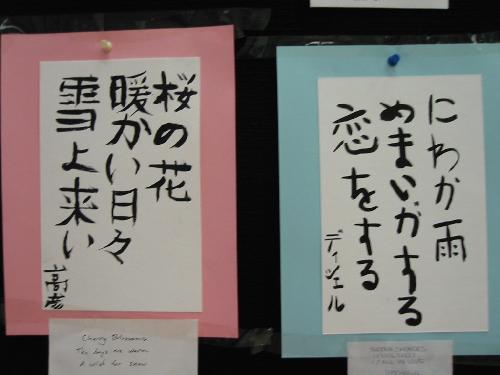 桜の花
暖かい日々
雪よ来い
高彦
Cherry Blossoms
The days are warm
A wish for snow
にわか雨
めまいがする
恋をする
ディシェル